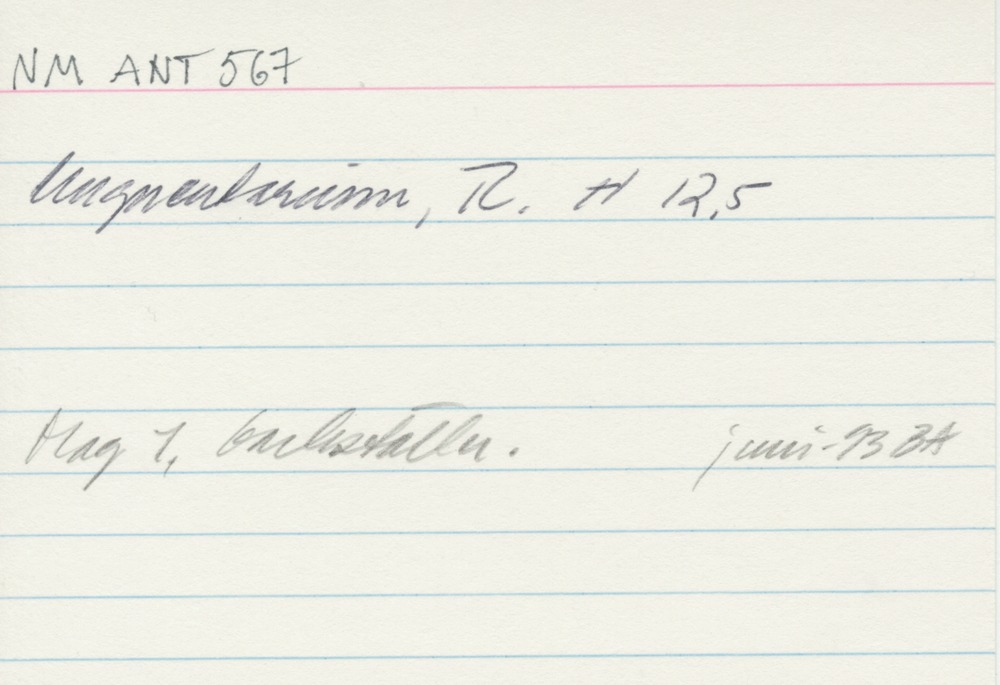 NM ANT 567
Unguentarium, R. H 12,5
Mag 1, backstället.
juni-93 BA